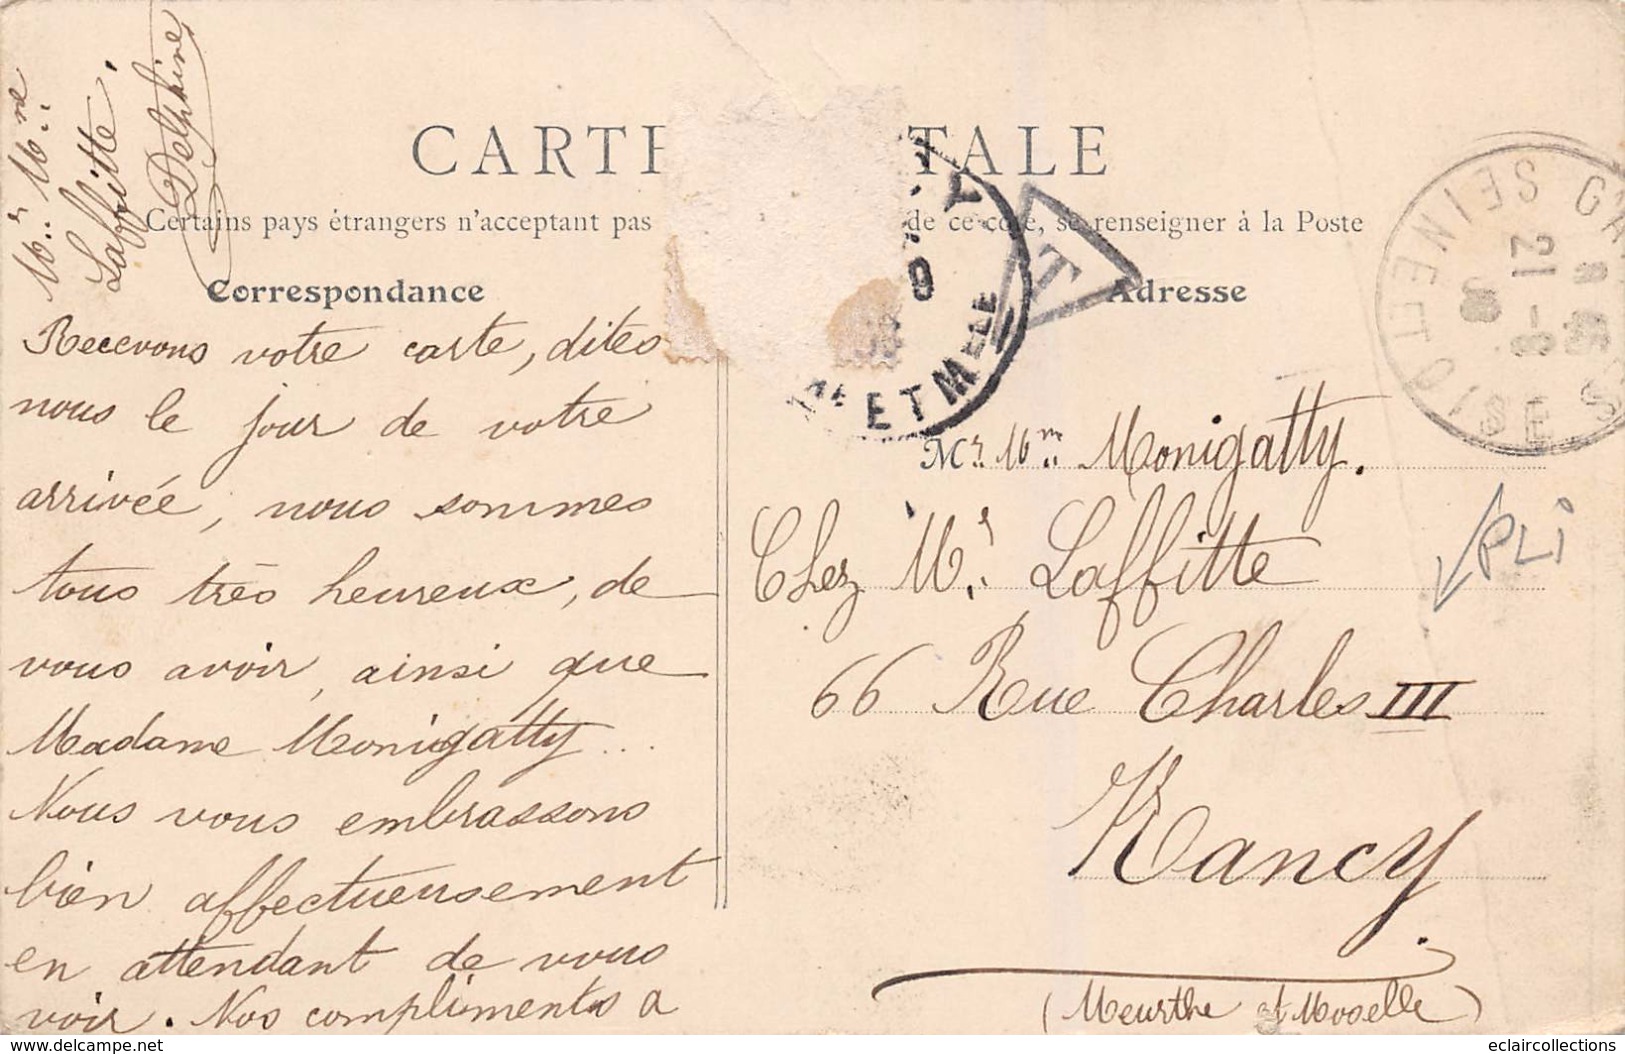 CARTE POSTALE
Certains pays étrangers n'acceptant pas de ce coté, se renseigner à la Poste
Correspondance
Recevons votre carte, dites
nous le jour de votre
arrivée, nous sommes
tous très heureux, de
vous avoir, ainsi que
Madame Monigatty...
Nous vous embrassons
bien affectueusement
en attendant de vous
voir. Nos compliments a
Mr. Mme
Laffitte.
Delphine
Adresse
Mr. Mm. Monigatty.
Chez Mr. Laffitte
66 Rue Charles III
Nancy.
(Meurthe et Moselle)
PLi
T
ET MELLE
SEINE ET OISE
21 - 8
eclaircollections
delcampe.net